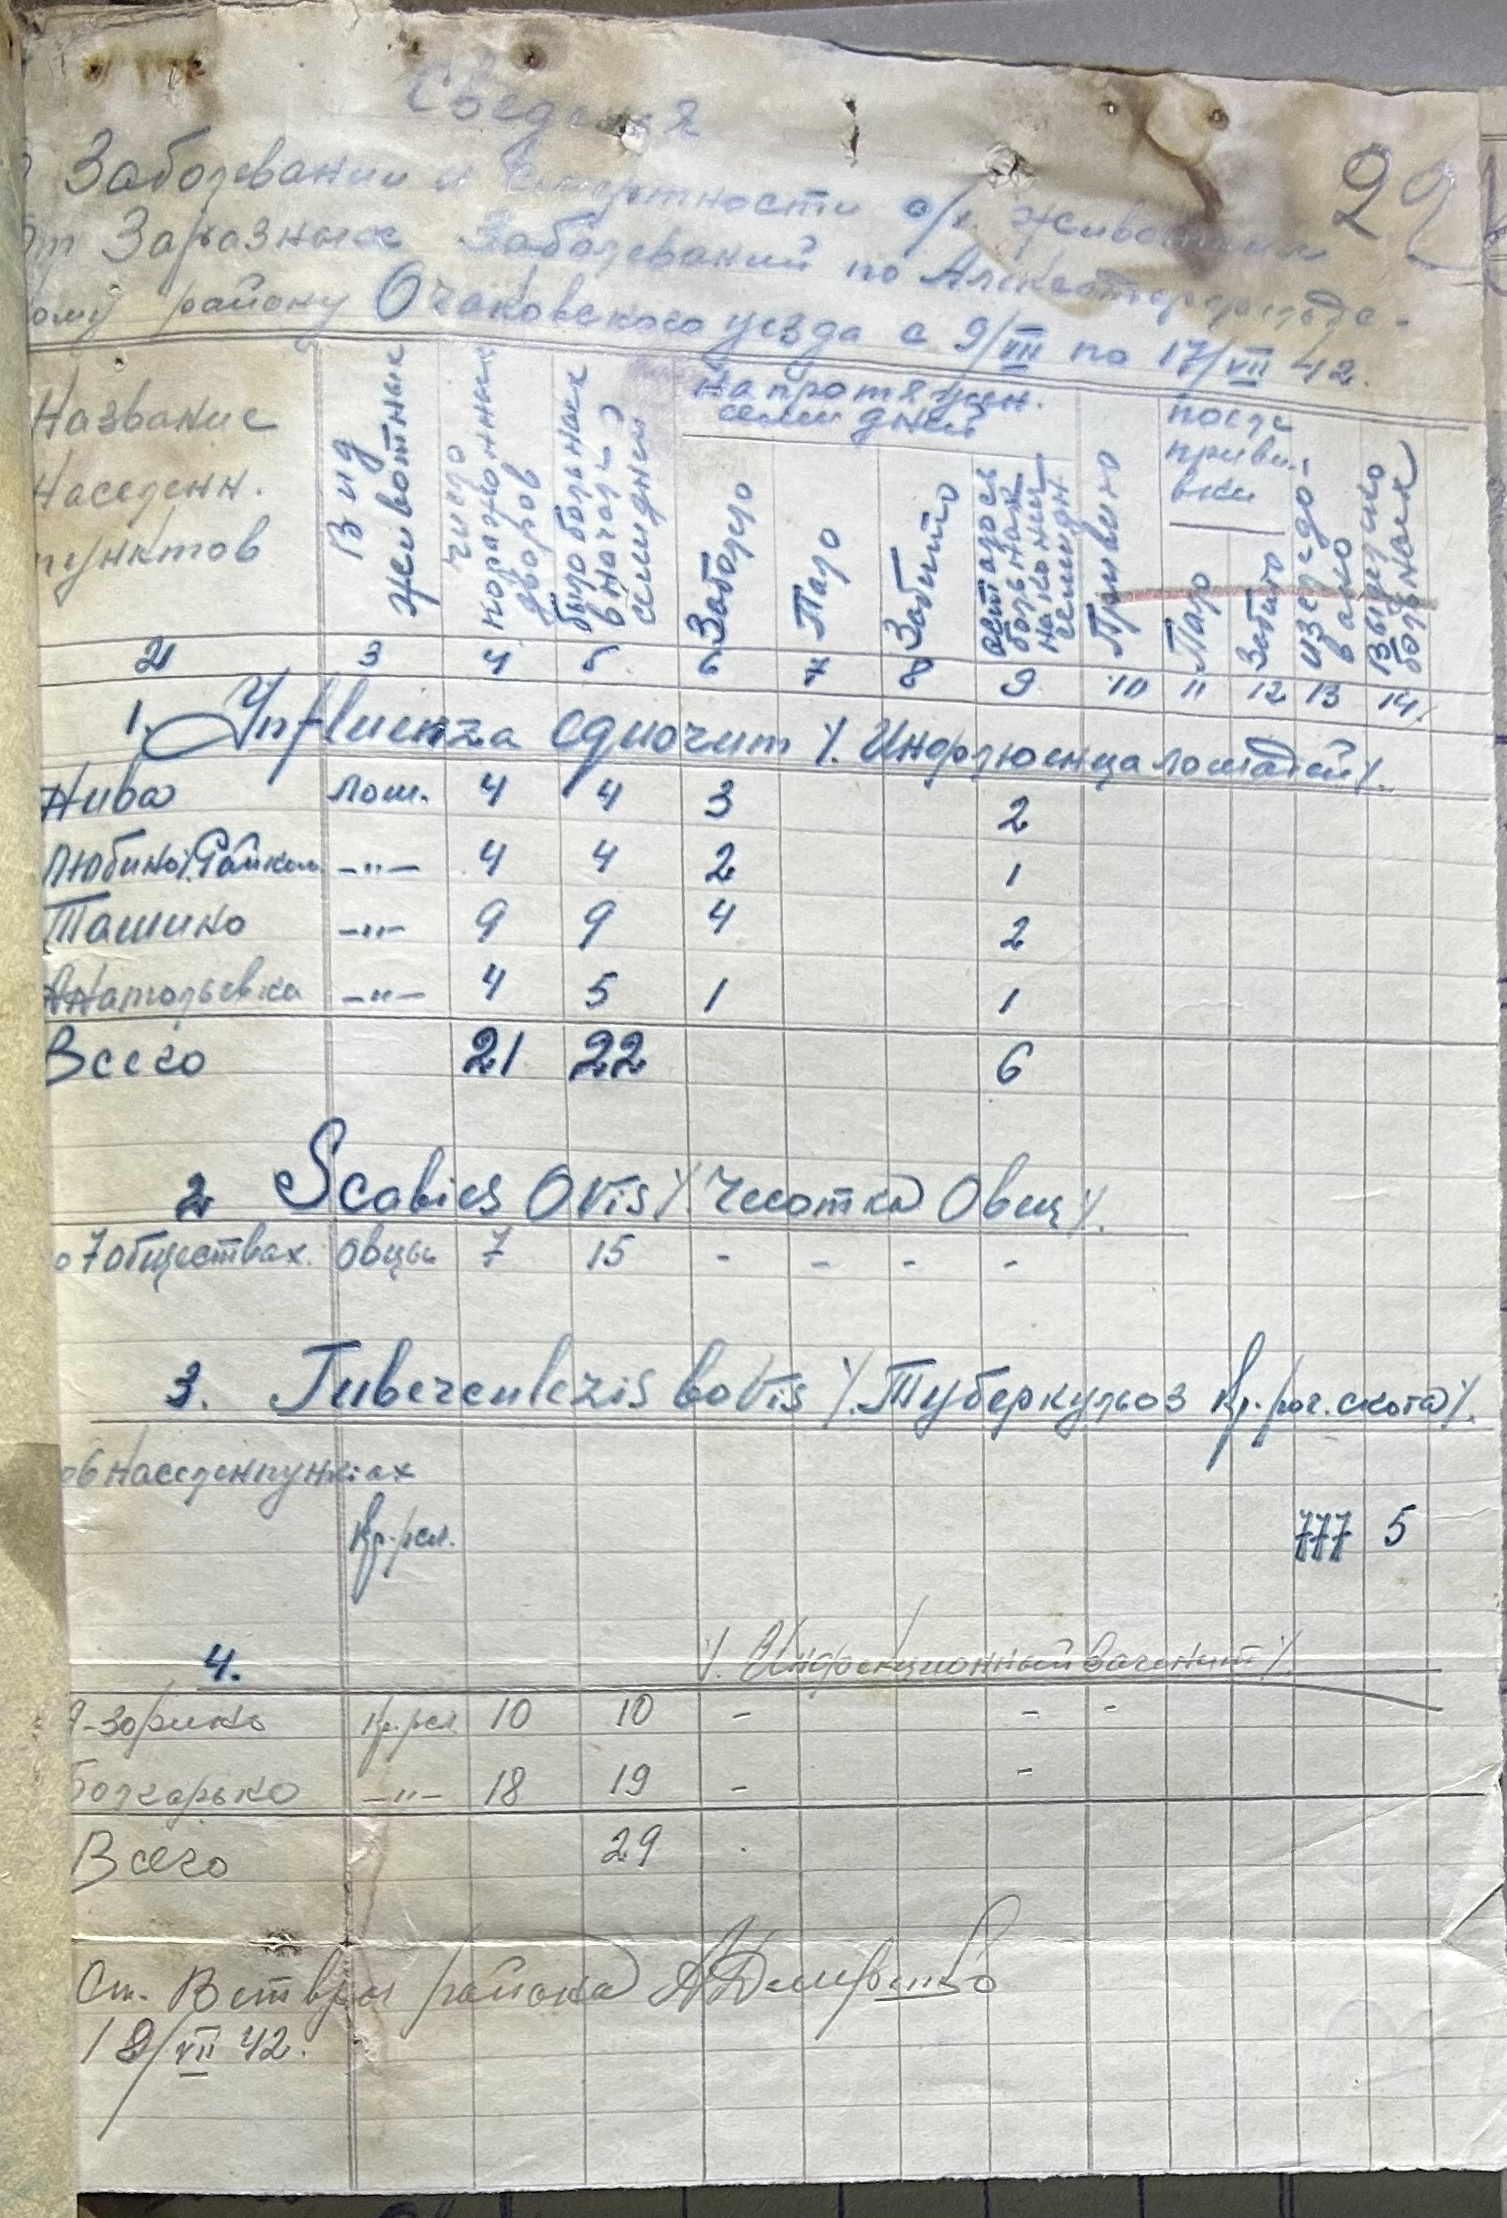 Сведения
Заболевании и смертности с/х. животных
от Заразных Заболеваний по
ому району Очаковского уезда с 9/VII по 17/VII 42.
Название населенн. пунктов
Вид животных
число пораженных дворов
было больных в начале семидней
На протяжен. семи дней
Заболело
Пало
Забито
осталось больных на конец семидн
Привито
после привив вки
Пало
Забито
Изследо вано
Выделено больных
2 3 4 5 6 7 8 9 10 11 12 13 14
1. Influenza equorum /. Инфлюенца лошадей /.
Нива лош. 4 4 3 2
Любино/. -"- 4 4 2 1
Ташино -"- 9 9 4 2
Анатольевка -"- 4 5 1 1
Всего 21 22 6
2 Scabies Ovis /. Чесотка Овец /.
о 7 обществах. овцы 7 15 - - - -
3. Tuberculezis bovis /. Туберкульоз Кр. рог. скота /.
в 6 населенпунктах
Кр. 777 5
4. /. Инфекционный вагенит /.
10 10 - - -
Болгарько -"- 18 19 - -
Всего 29
Ст. Ветврач района
18/VII 42.
22